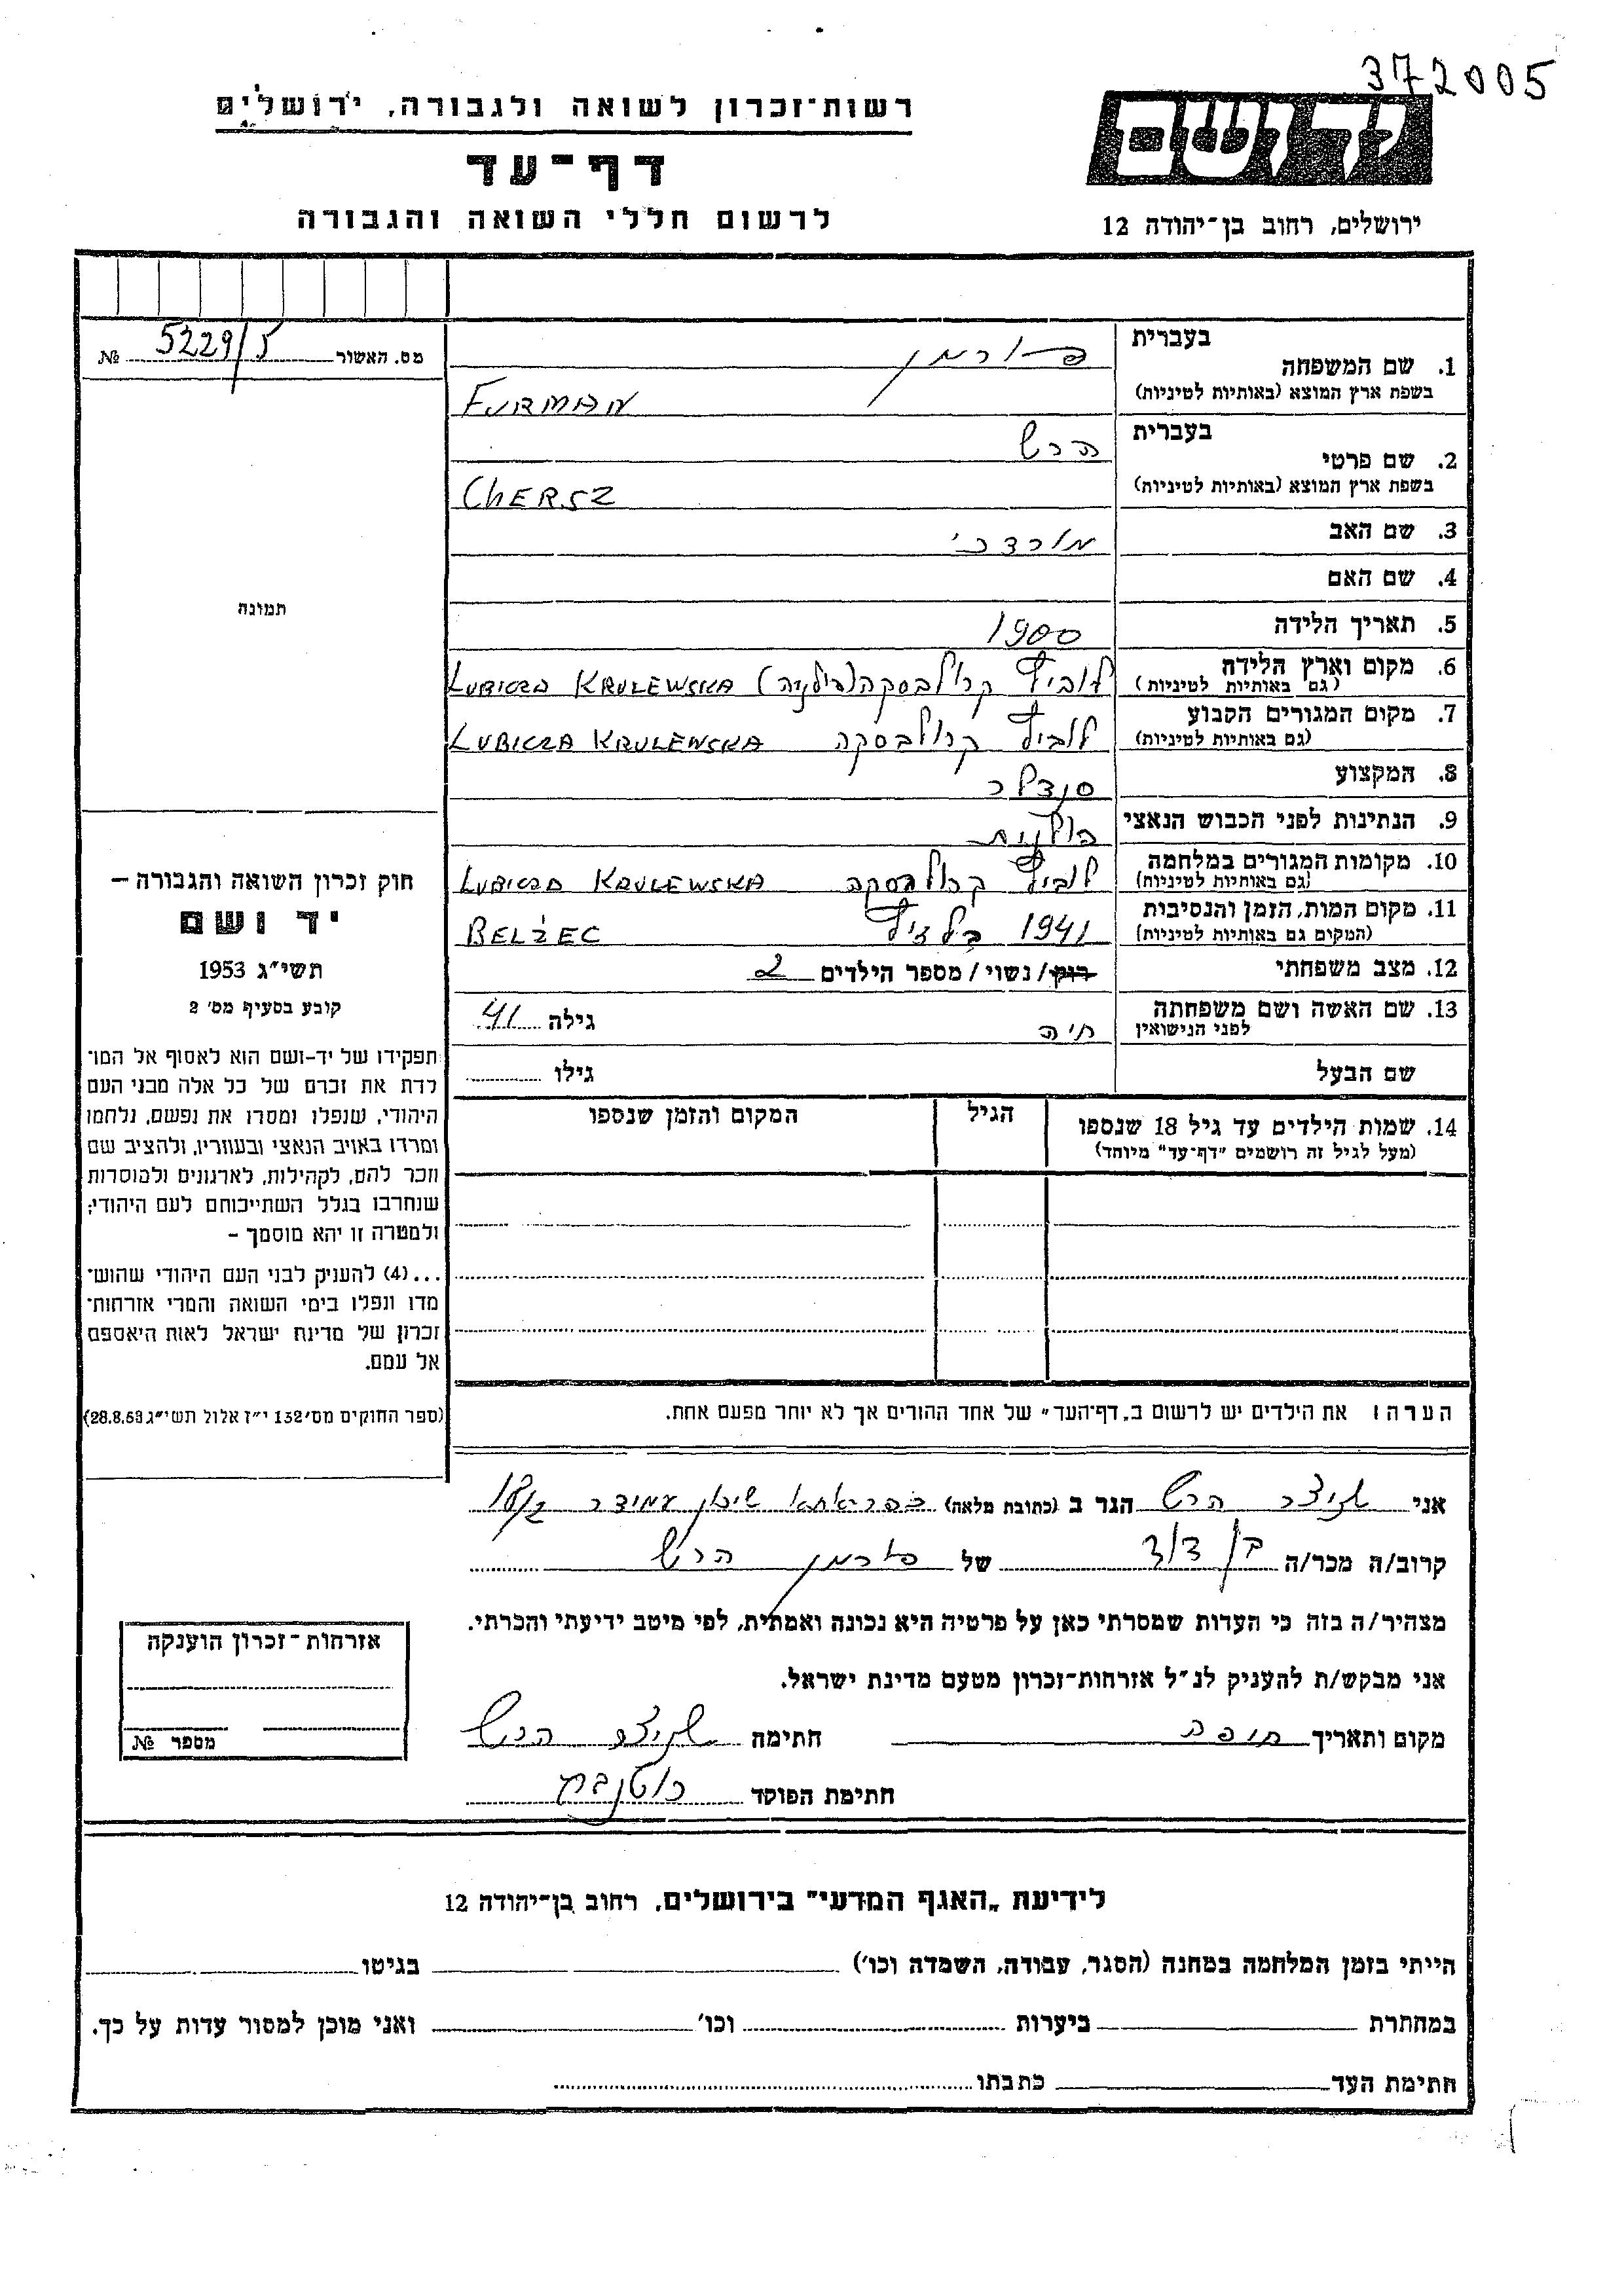 372005
רשות־זכרון לשואה ולגבורה, ירושלים
דף־עד
לרשום חללי השואה והגבורה
יד ושם
ירושלים, רחוב בן־יהודה 12
מס. האשור 5229/5 №
תמונה
חוק זכרון השואה והגבורה –
יד ושם
תשי״ג 1953
קובע בסעיף מס׳ 2
תפקידו של יד-ושם הוא לאסוף אל המו־
לדת את זכרם של כל אלה מבני העם
היהודי, שנפלו ומסרו את נפשם, נלחמו
ומרדו באויב הנאצי ובעוזריו, ולהציב שם
וזכר להם, לקהילות, לארגונים ולמוסדות
שנחרבו בגלל השתייכותם לעם היהודי;
ולמטרה זו יהא מוסמך –
...(4) להעניק לבני העם היהודי שהוש־
מדו ונפלו בימי השואה והמרי אזרחות־
זכרון של מדינת ישראל לאות היאספם
אל עמם.
(ספר החוקים מס׳ 132 י״ז אלול תשי״ג 28.8.53)
בעברית
1. שם המשפחה פורמן
בשפת ארץ המוצא (באותיות לטיניות) FURMAN
בעברית
2. שם פרטי הרש
בשפת ארץ המוצא (באותיות לטיניות) CHERSZ
3. שם האב מורדכי
4. שם האם
5. תאריך הלידה 1900
6. מקום וארץ הלידה לוביץ קרולבסקה (פולניה) LUBICZA KRULEWSKA
(גם באותיות לטיניות)
7. מקום המגורים הקבוע לוביץ קרולבסקה LUBICZA KRULEWSKA
(גם באותיות לטיניות)
8. המקצוע סנדלר
9. הנתינות לפני הכבוש הנאצי פולנית
10. מקומות המגורים במלחמה לוביץ קרולבסקה LUBICZA KRULEWSKA
(גם באותיות לטיניות)
11. מקום המות, הזמן והנסיבות 1941 בלזיץ BELŻEC
(המקום גם באותיות לטיניות)
12. מצב משפחתי רווק / נשוי / מספר הילדים 2
13. שם האשה ושם משפחתה חיה גילה 41
לפני הנישואין
שם הבעל גילו
14. שמות הילדים עד גיל 18 שנספו הגיל המקום והזמן שנספו
(מעל לגיל זה רושמים "דף־עד" מיוחד)
הערה: את הילדים יש לרשום ב„דף־העד" של אחד ההורים אך לא יותר מפעם אחת.
אני שניצר הרש הגר ב (כתובת מלאה) שיכון עמידר 18/2
קרוב/ה מכר/ה בן דוד של פורמן הרש
מצהיר/ה בזה כי העדות שמסרתי כאן על פרטיה היא נכונה ואמתית, לפי מיטב ידיעתי והכרתי.
אני מבקש/ת להעניק לנ״ל אזרחות־זכרון מטעם מדינת ישראל.
מקום ותאריך חיפה חתימה שניצר הרש
חתימת הפוקד
אזרחות־זכרון הוענקה
מספר №
לידיעת „האגף המדעי" בירושלים, רחוב בן־יהודה 12
הייתי בזמן המלחמה במחנה (הסגר, עבודה, השמדה וכו׳) בגיטו
במחתרת ביערות וכו׳ ואני מוכן למסור עדות על כך.
חתימת העד כתבתו